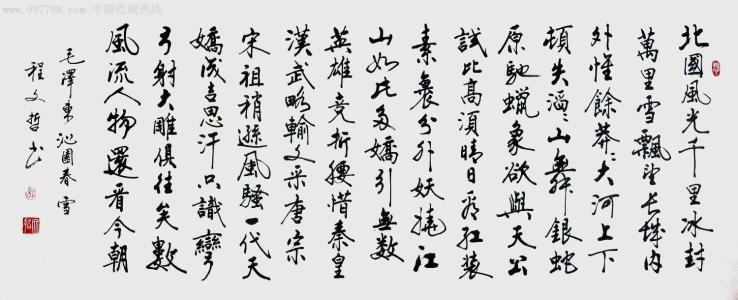 www.997788.com 中国收藏热线
北國風光千里冰封
萬里雪飄望长城内
外惟餘莽々大河上下
頓失滔々山舞銀蛇
原馳蠟象欲與天公
試比高須晴日看红装
素裹分外妖嬈江
山如此多嬌引無数
英雄竞折腰惜秦皇
漢武略輸文采唐宗
宋祖稍遜風騷一代天
嬌成吉思汗只識彎
弓射大雕俱往矣數
風流人物還看今朝
毛澤東沁園春雪
程文哲书